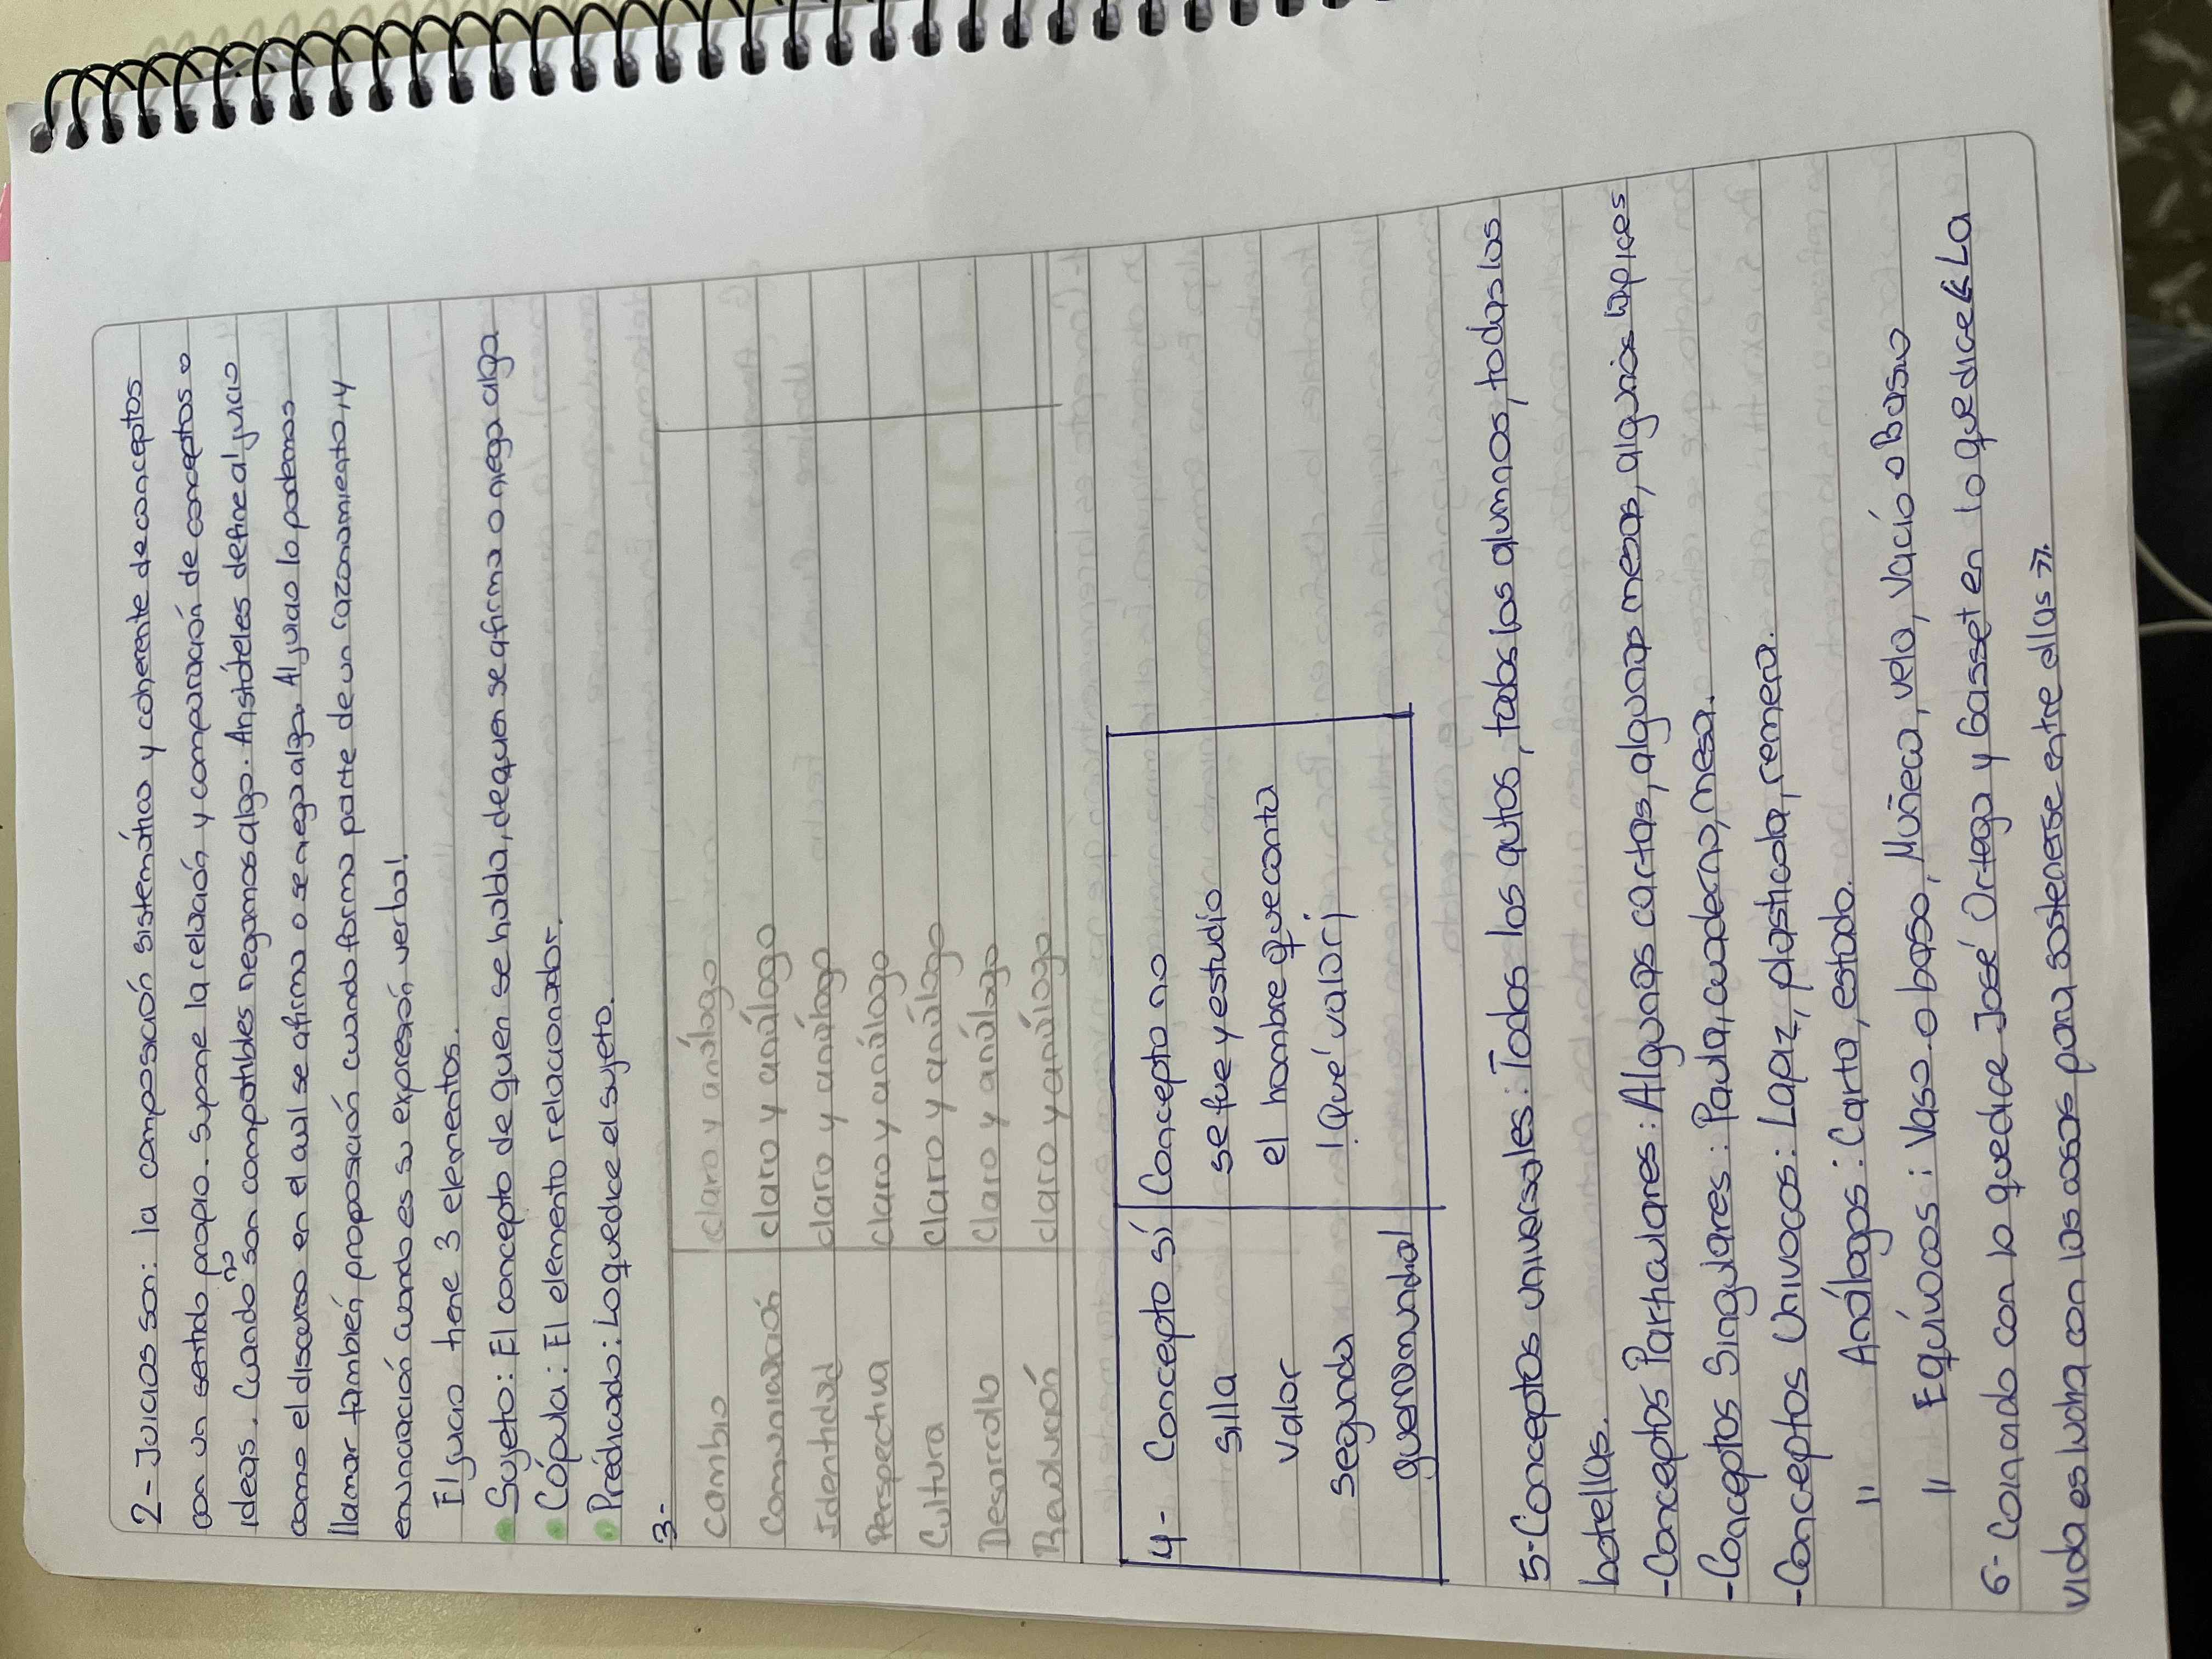 2- Juicios son: la composición sistemática y coherente de conceptos
con un sentido propio. Supone la relación y comparación de conceptos o
ideas. Cuando no son compatibles negamos algo. Aristóteles define al juicio
como el discurso en el cual se afirma o se niega algo. Al juicio lo podemos
llamar también proposición cuando forma parte de un razonamiento, y
enunciación cuando es su expresión verbal.
El juicio tiene 3 elementos.
Sujeto: El concepto de quien se habla, de quien se afirma o niega algo
Cópula: El elemento relacionador.
Prédicado: Lo que dice el sujeto.
3-
Cambio claro y análogo
Comunicación claro y análogo
Identidad claro y análogo
Perspectiva claro y análogo
Cultura claro y análogo
Desarrollo claro y análogo
Revolución claro y análogo
4- Concepto sí Concepto no
silla se fue y estudio
valor el hombre que canta
segunda ¡Qué valor!
guerra mundial
5- Conceptos universales: Todos los autos, todos los alumnos, todas las
botellas.
- Conceptos Particulares: Algunas cartas, algunas mesas, algunos lapices
- Conceptos Singulares: Paula, cuaderno, mesa.
- Conceptos Univocos: Lapiz, plasticola, remera.
" Análogos: Carta, estado.
" Equívocos: Vaso o baso, Muñeca, vela, vacío o Basio
6- Coincido con lo que dice José Ortega y Gasset en lo que dice «La
vida es lucha con las cosas para sostenerse entre ellas».